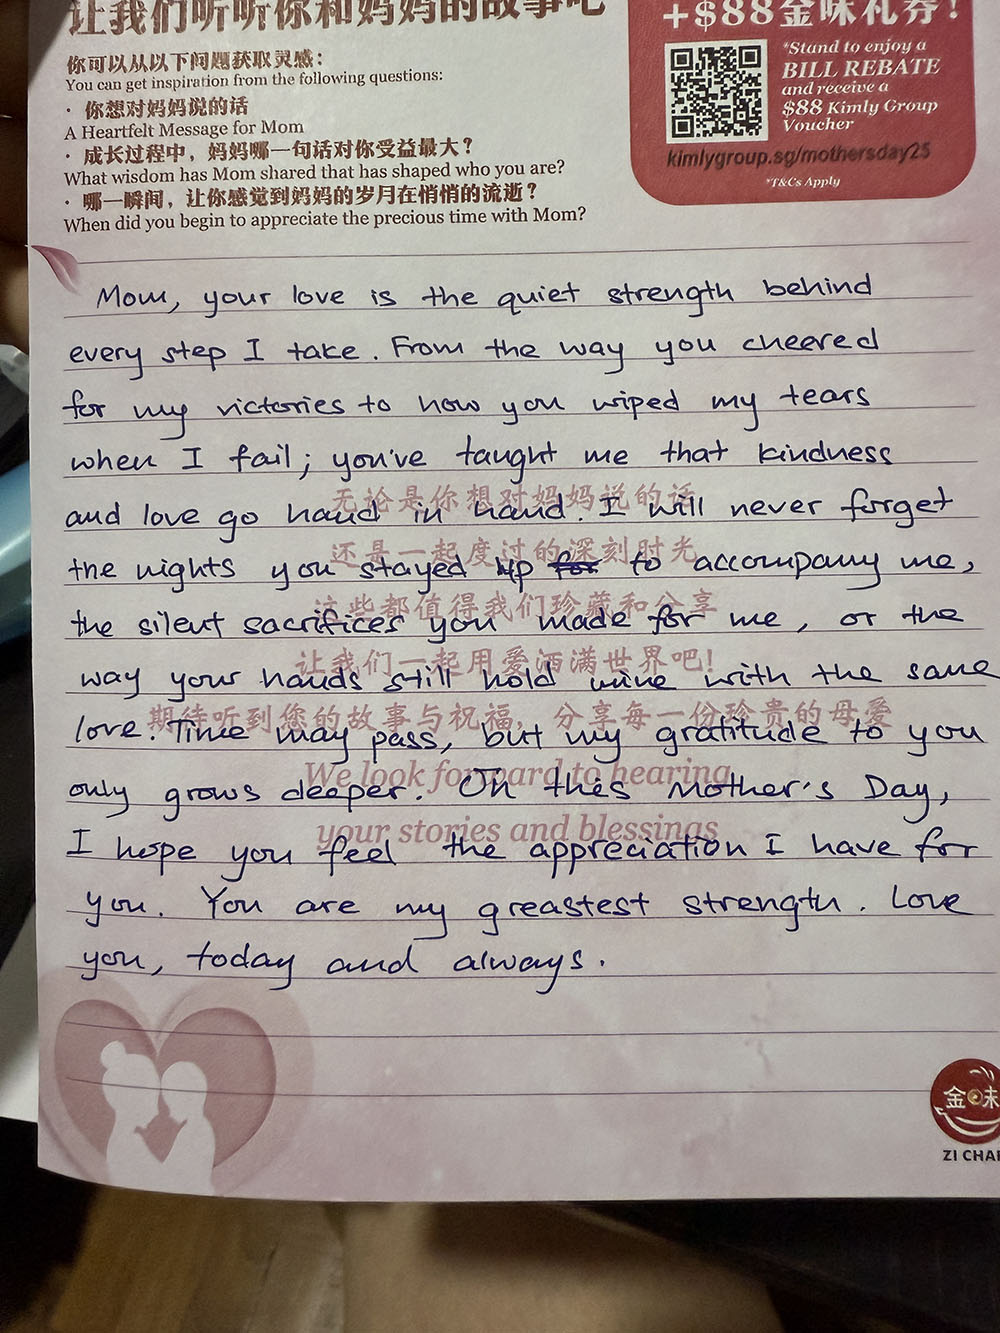 让我们听听你和妈妈的故事吧
你可以从以下问题获取灵感：
You can get inspiration from the following questions:
· 你想对妈妈说的话
A Heartfelt Message for Mom
· 成长过程中，妈妈哪一句话对你受益最大？
What wisdom has Mom shared that has shaped who you are?
· 哪一瞬间，让你感觉到妈妈的岁月在悄悄的流逝？
When did you begin to appreciate the precious time with Mom?
+$88金味礼券!
*Stand to enjoy a
BILL REBATE
and receive a
$88 Kimly Group
Voucher
kimlygroup.sg/mothersday25
*T&Cs Apply
Mom, your love is the quiet strength behind
every step I take. From the way you cheered
for my victories to how you wiped my tears
when I fail; you've taught me that kindness
and love go hand in hand. I will never forget
the nights you stayed up for to accompany me,
the silent sacrifices you made for me, or the
way your hands still hold mine with the same
love. Time may pass, but my gratitude to you
only grows deeper. On this Mother's Day,
I hope you feel the appreciation I have for
you. You are my greastest strength. Love
you, today and always.
无论是你想对妈妈说的话
还是一起度过的深刻时光
这些都值得我们珍藏和分享
让我们一起用爱洒满世界吧!
期待听到您的故事与祝福，分享每一份珍贵的母爱
We look forward to hearing
your stories and blessings
金味
ZI CHAR